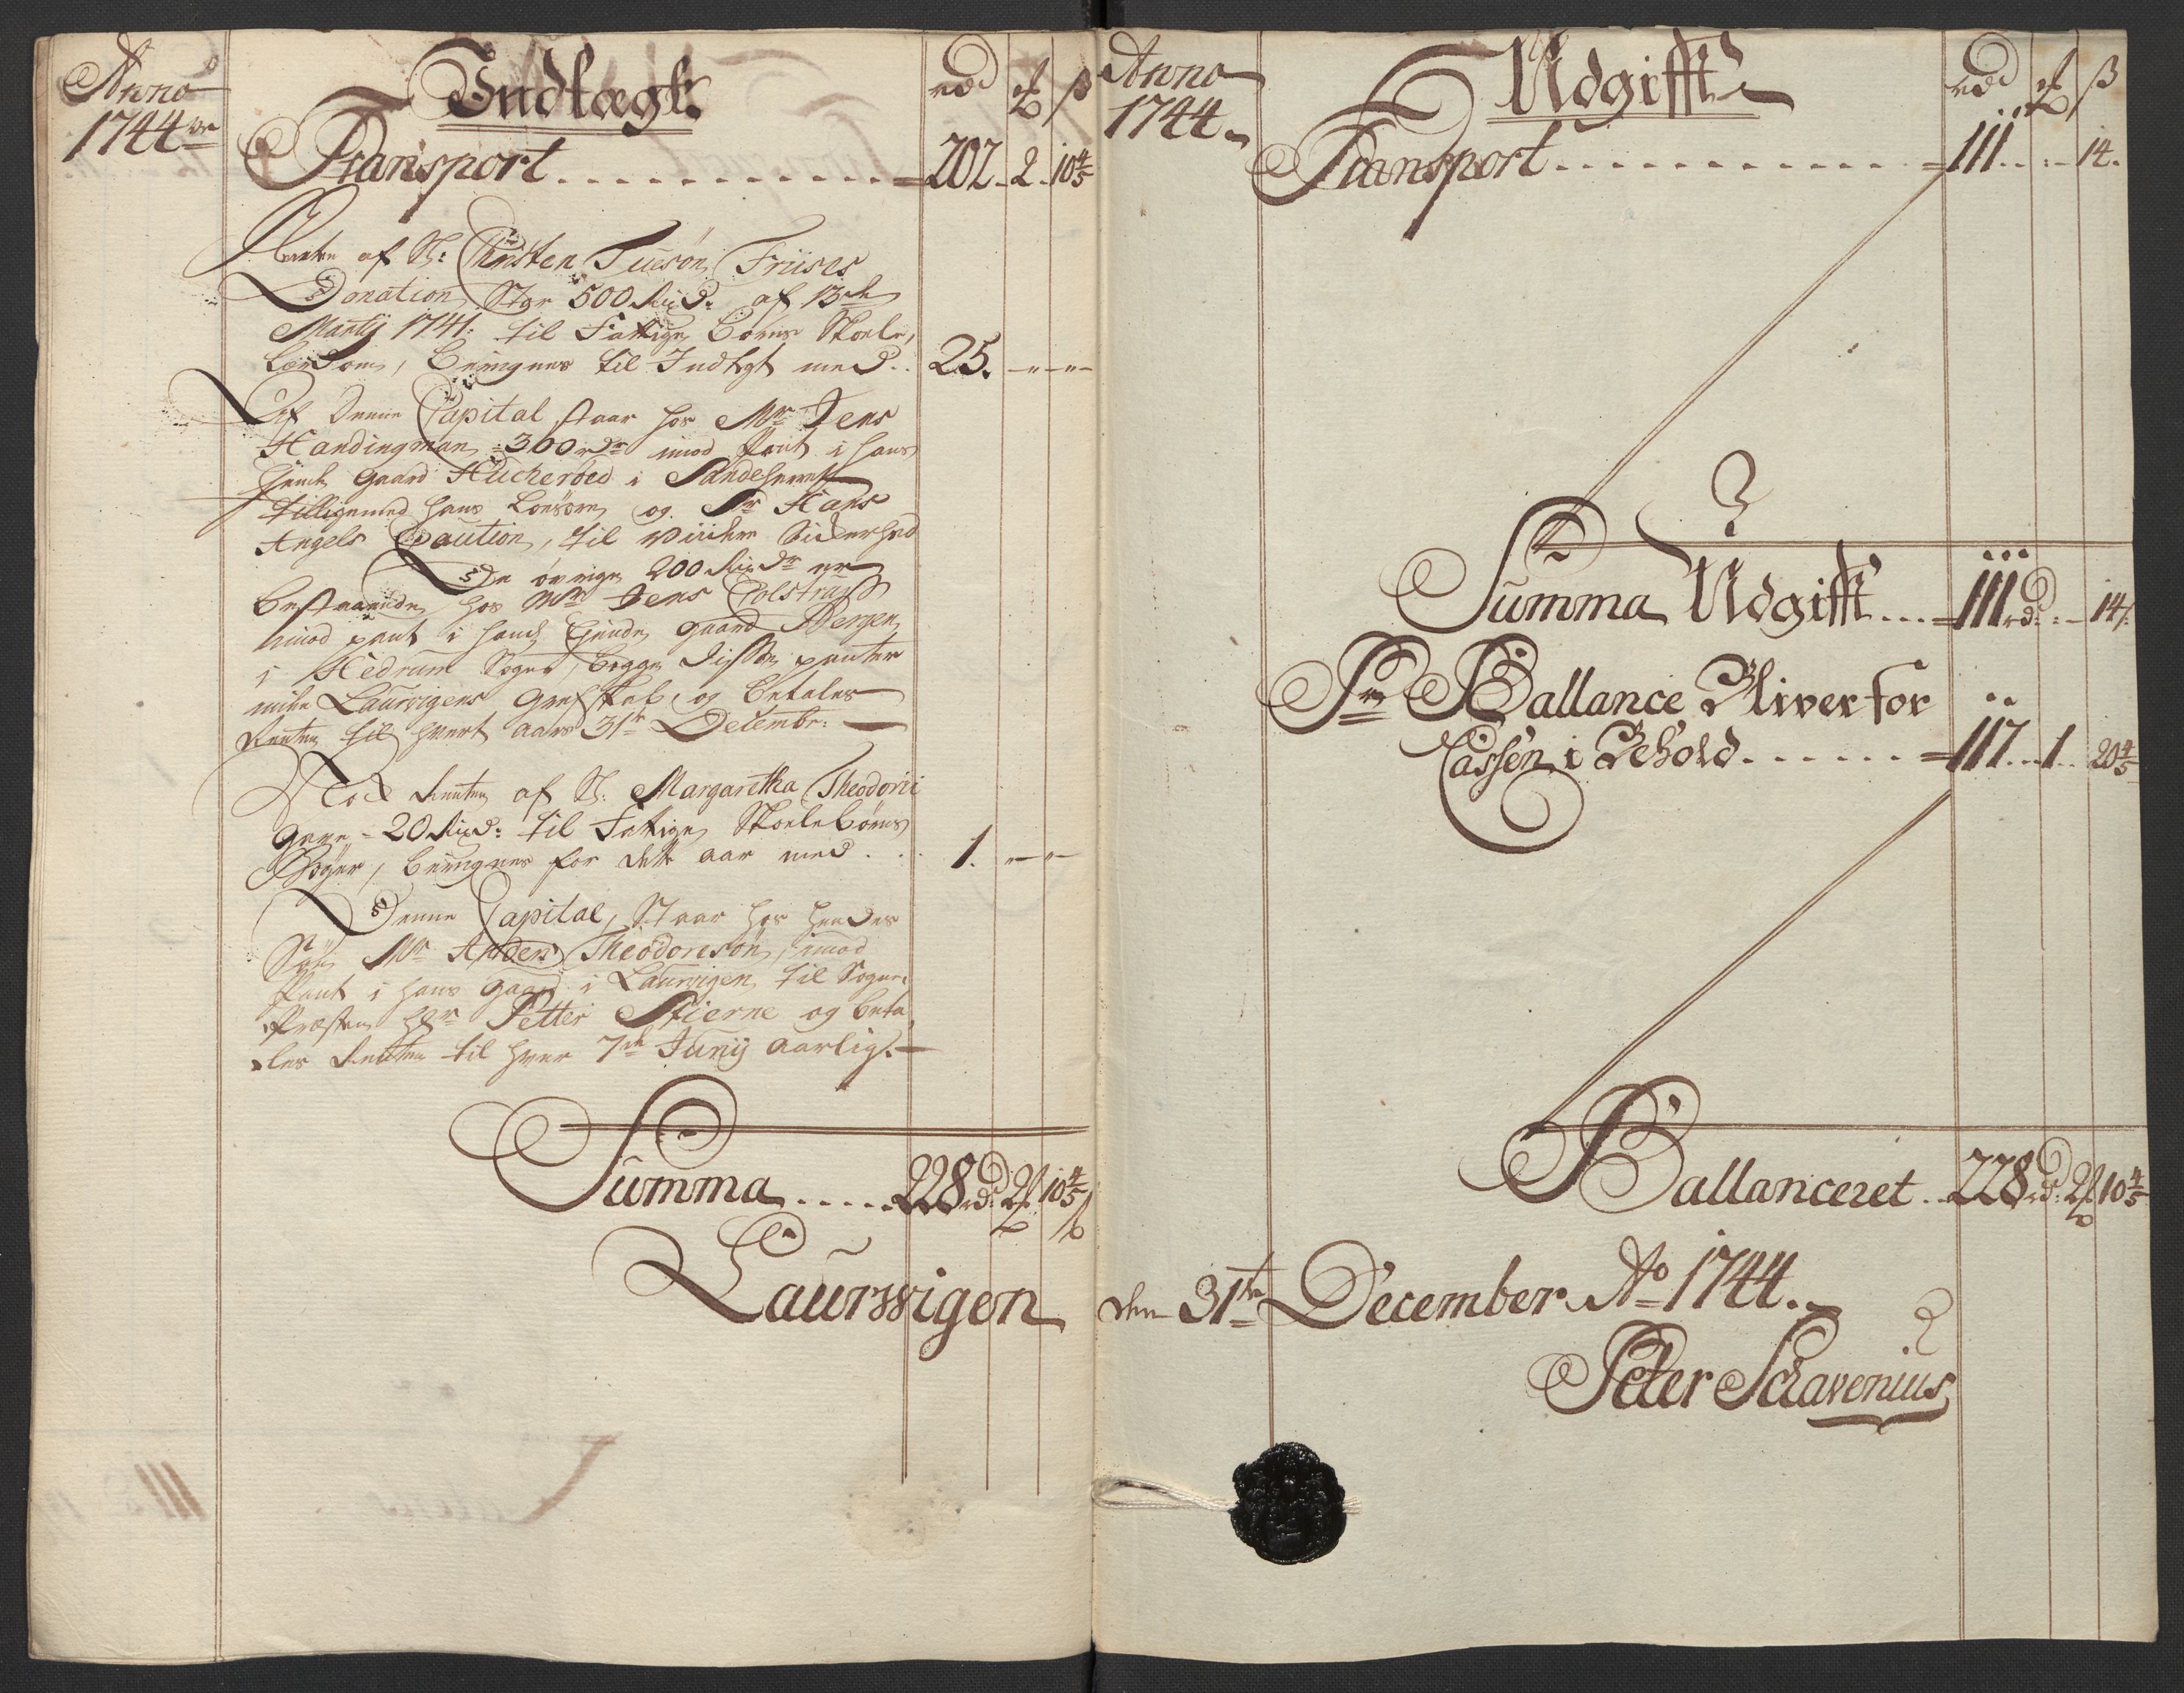 Anno
1744
Indtægt
rd ℔ ß
Transport . . . . . . . . . . . . 202. 2. 10 4/5
Rente af Sl: Christen Tuesøn Friises
Donation Stor 500 Rixd: af 13de
Martij 1741: til Fattige Børns Skoele,
Lærdom, beregnes til Indtegt med . . 25. -"-"-
Af denne Capital staar hos Mr Jens
Handingman 300 rdr imod Pant i hans
Gaard i Sandeherret
tilligemed hans Løsøre, og Sr Hans
Angels Caution, til Sickerhed
De øvrige 200 Rixdr er
bestaaende hos Mr Jens Colstrup
imod pant i hans Gaard Bergen
i Hedrum Sogn, begge disse panter
Laurvigens Grefskab og betales
Renten til hvert Aars 31te Decembr:
Nock Renten af Sl: Margaretha Theodorii
Gave 20 Rixd: til Fattige Skoelebørns
Bøger, beregnes for dette aar med . . 1. -"-"-
Denne Capital, Staar hos hendes
Søn Mr Anders Theodoresøn, imod
Pant i hans Gaard i Laurvigen til Sogne-
Præsten Hr Petter Stierne og beta-
les Renten til hver 7de Junij aarlig.
Summa . . . . . 228 rd: 2 ℔ 10 4/5 ß
Laurwigen
Anno
1744.
Udgifft
rd ℔ ß
Transport . . . . . . . . . . . . 111. . : - 14.
Summa Udgifft . . . 111 rd: : - 14 ß:
Pr Ballance bliver for
Cassen i Behold . . . . . . . 117. . 1. . 20 4/5
Ballanceret . . 228 rd: 2 ℔ 10 4/5
den 31te December Ao 1744.
Peter Schavenius